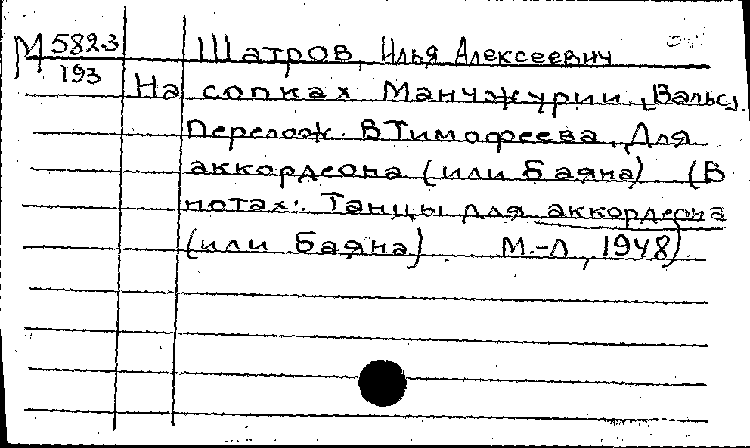 М 5823/193 Шатров, Илья Алексеевич
На сопках Манчжурии. [Вальс].
Перелож. В Тимофеева. Для
аккордеона (или баяна) (В
нотах: Танцы для аккордеона
(или баяна). М.-Л, 1948)